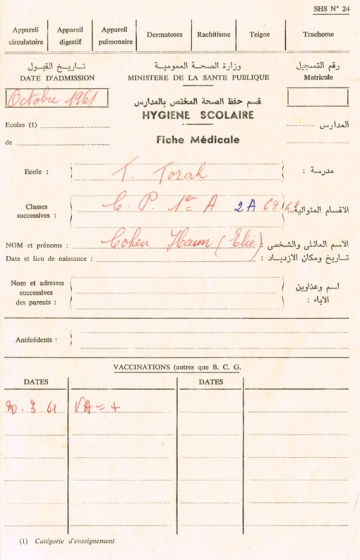 SHS N° 24
Appareil circulatoire
Appareil digestif
Appareil pulmonaire
Dermatoses
Rachitisme
Teigne
Trachome
تاريخ القبول
وزارة الصحة العمومية
رقم التسجيل
DATE D'ADMISSION
MINISTERE DE LA SANTE PUBLIQUE
Matricule
Octobre 1961
قسم حفظ الصحة المختص بالمدارس
HYGIENE SCOLAIRE
Ecoles (1)
المدارس
de
Fiche Médicale
Ecole : T. Torah مدرسة :
Classes successives : C. P. 1re A 2A الاقسام المتوالية :
NOM et prénoms : Cohen Haim (Elie) الاسم العائلي والشخصي :
Date et lieu de naissance : تاريخ ومكان الازدياد :
Nom et adresses successives des parents : اسم وعناوين الاباء :
Antécédents :
VACCINATIONS (autres que B. C. G.
DATES
DATES
20. 3. 61
(1) Catégorie d'enseignement